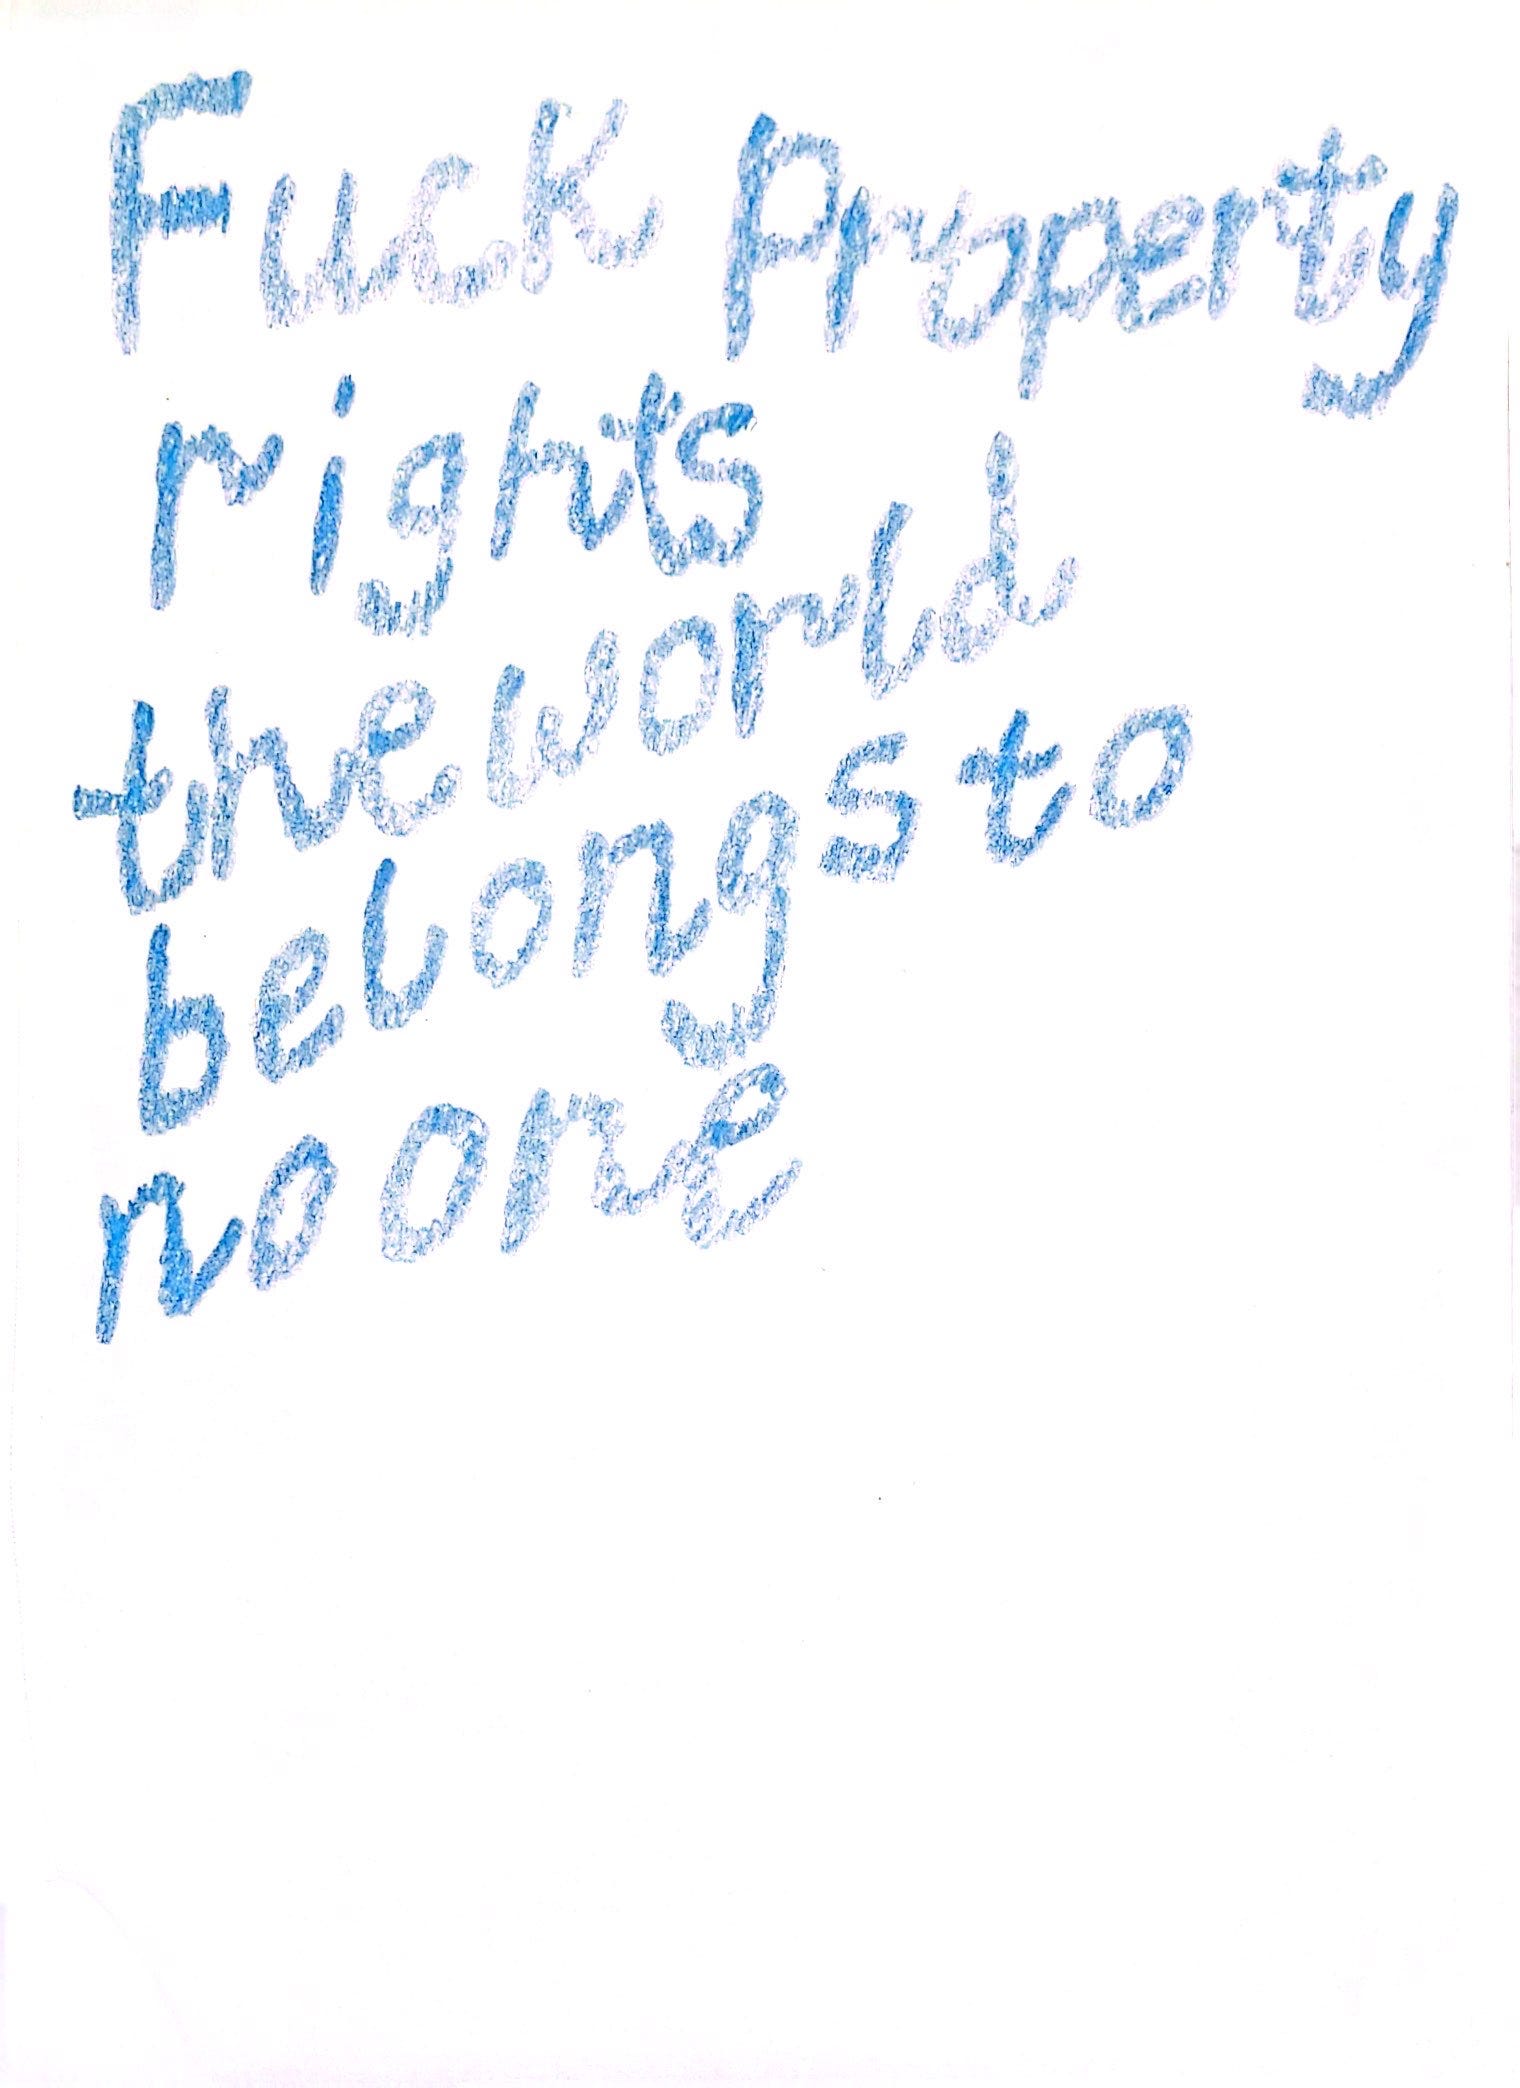 Fuck property
rights
the world
belongs to
no one